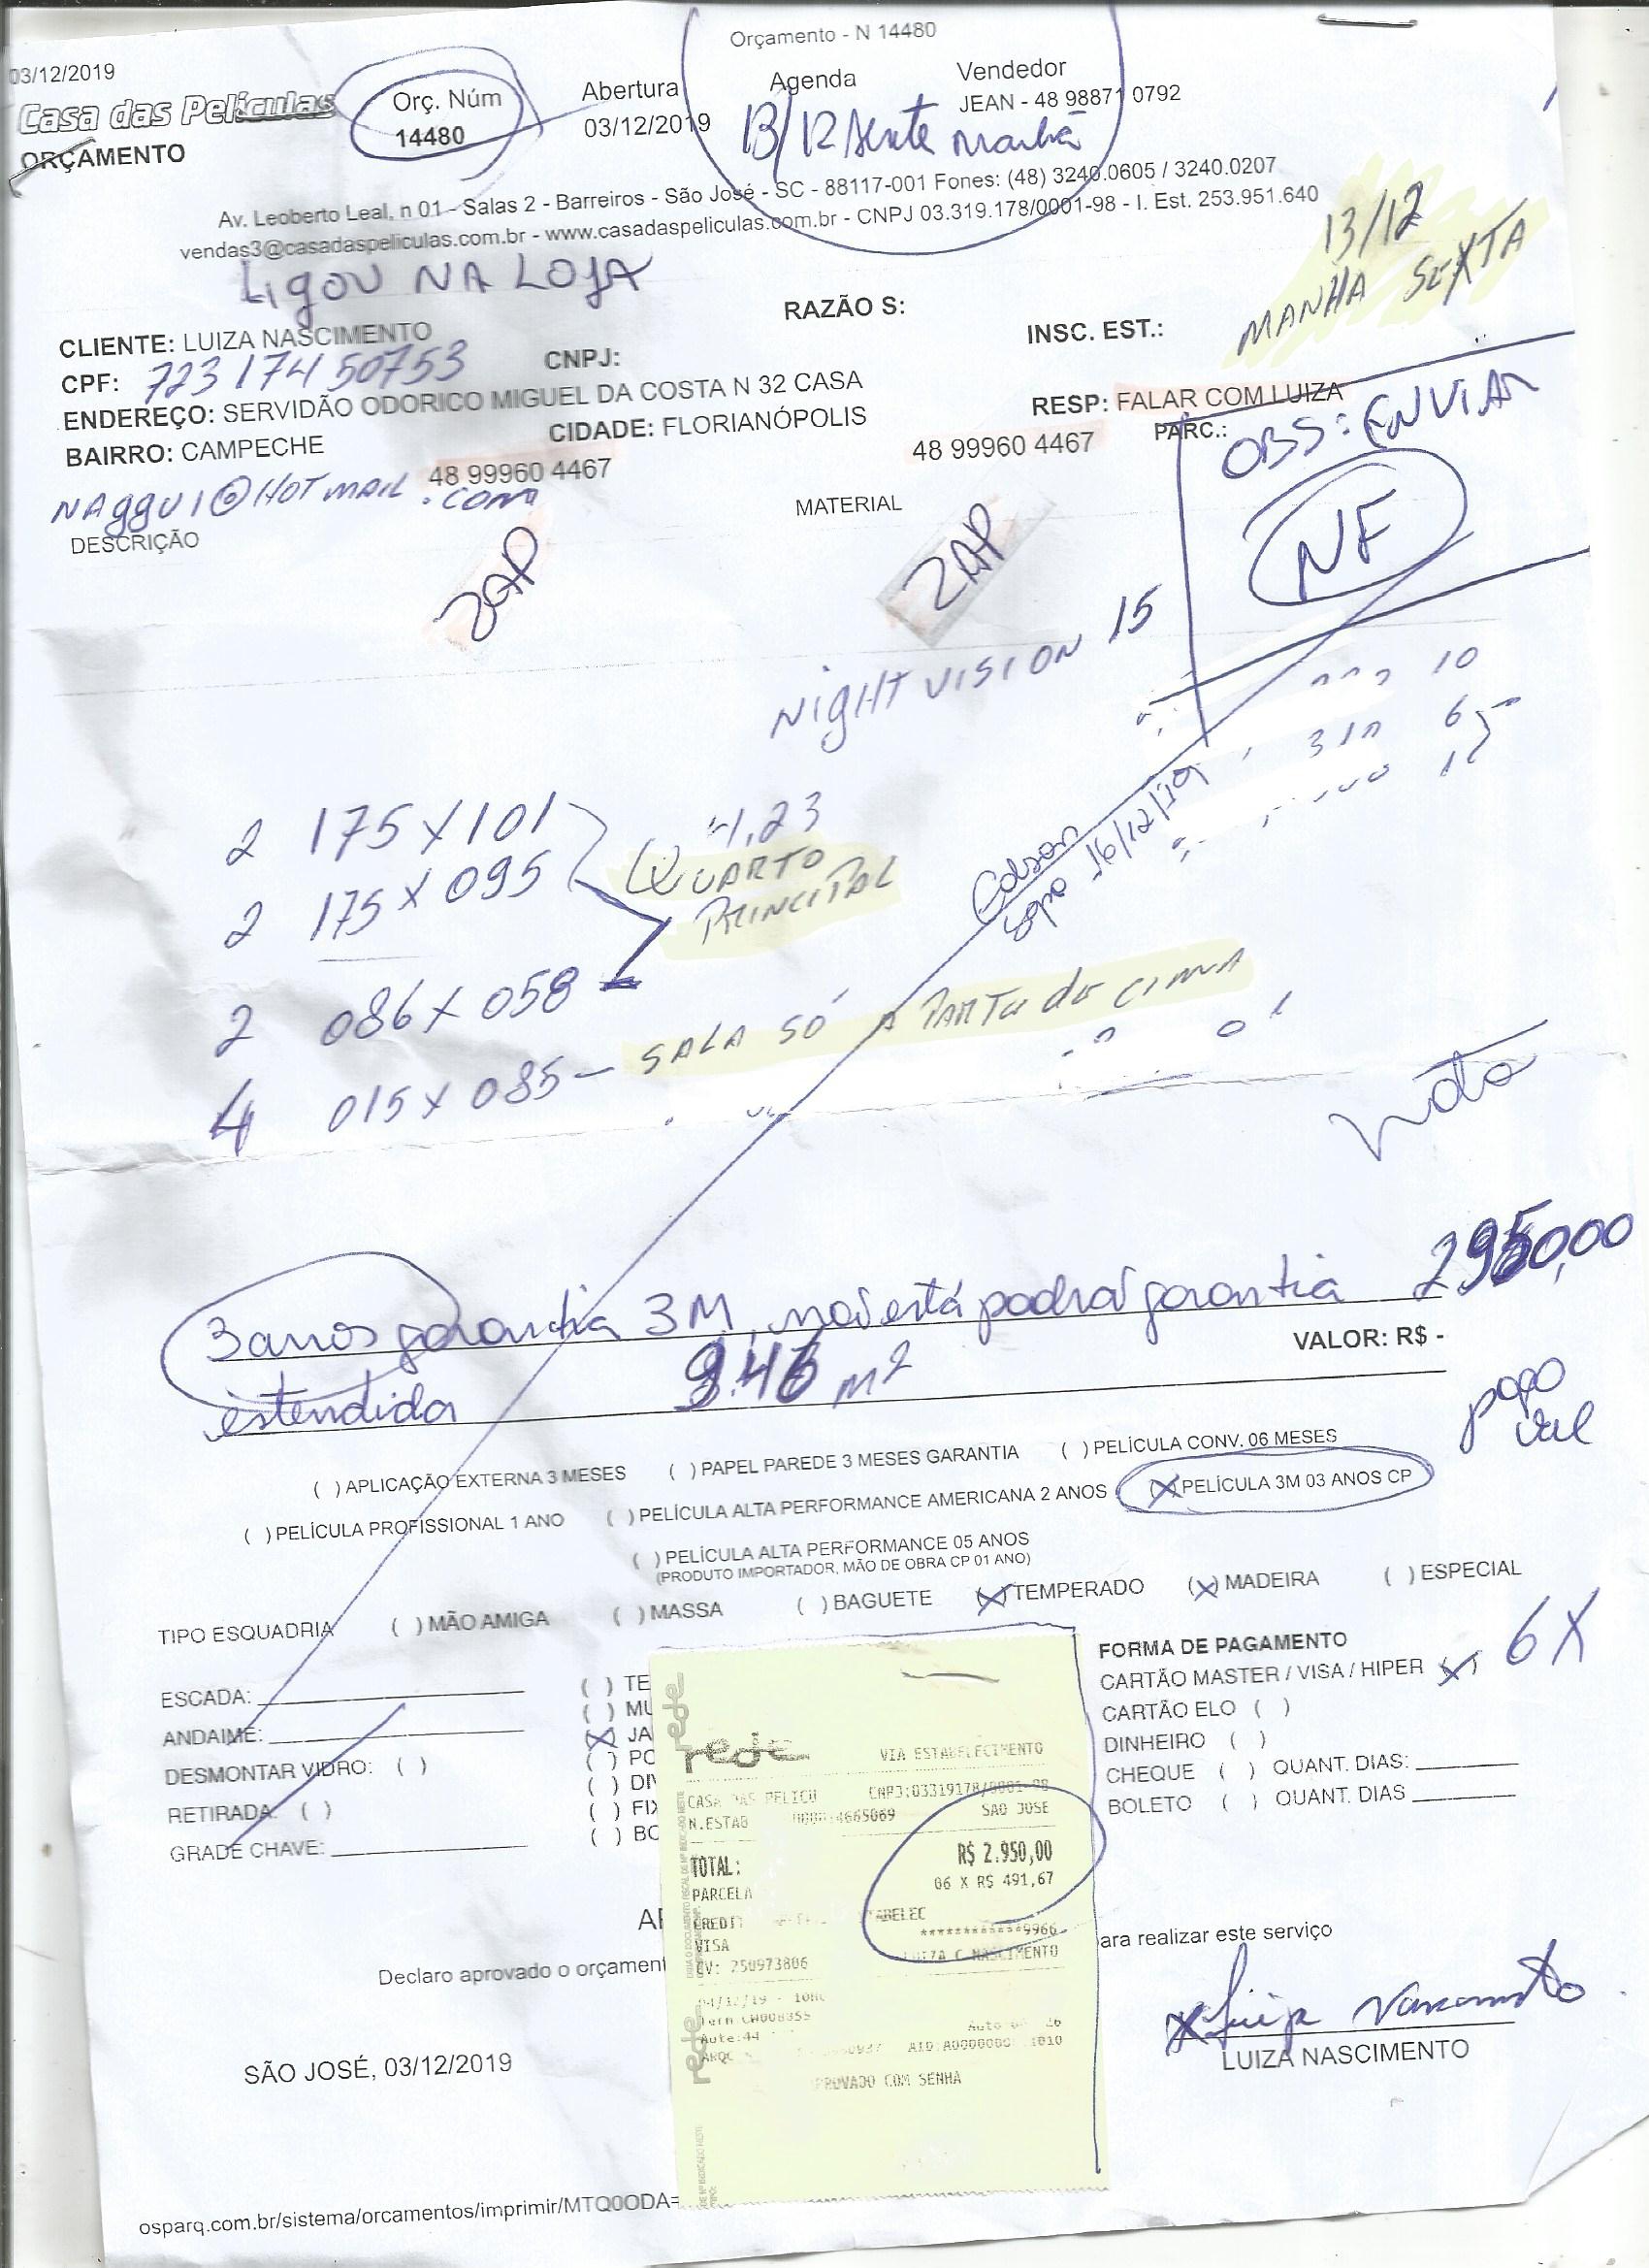 Orçamento - N 14480
03/12/2019
Casa das Películas
ORÇAMENTO
Orç. Núm
14480
Abertura
03/12/2019
Agenda
13/12 sexta manhã
Vendedor
JEAN - 48 98871 0792
Av. Leoberto Leal, n 01 - Salas 2 - Barreiros - São José - SC - 88117-001 Fones: (48) 3240.0605 / 3240.0207
vendas3@casadaspeliculas.com.br - www.casadaspeliculas.com.br - CNPJ 03.319.178/0001-98 - I. Est. 253.951.640
LIGOU NA LOJA
13/12
MANHA SEXTA
CLIENTE: LUIZA NASCIMENTO
RAZÃO S:
INSC. EST.:
CPF: 723 174 50753
CNPJ:
ENDEREÇO: SERVIDÃO ODORICO MIGUEL DA COSTA N 32 CASA
RESP: FALAR COM LUIZA
BAIRRO: CAMPECHE
CIDADE: FLORIANÓPOLIS
PARC.:
48 99960 4467
48 99960 4467
OBS: ENVIAR
NF
NAGGUI@HOTMAIL.COM
DESCRIÇÃO
MATERIAL
ZAP
ZAP
NIGHT VISION 15
10
65
15
2 175 X 101
4,23
2 175 X 095
QUARTO
PRINCIPAL
Edson
16/12/19
2 086 X 058 -
4 015 X 085 - SALA SÓ A PARTE DE CIMA
nota
3 anos garantia 3M, não está padrão garantia
2950,00
VALOR: R$ -
estendida
9.46 m²
( ) APLICAÇÃO EXTERNA 3 MESES ( ) PAPEL PAREDE 3 MESES GARANTIA ( ) PELÍCULA CONV. 06 MESES
( ) PELÍCULA PROFISSIONAL 1 ANO ( ) PELÍCULA ALTA PERFORMANCE AMERICANA 2 ANOS (X) PELÍCULA 3M 03 ANOS CP
( ) PELÍCULA ALTA PERFORMANCE 05 ANOS
(PRODUTO IMPORTADOR, MÃO DE OBRA CP 01 ANO)
TIPO ESQUADRIA ( ) MÃO AMIGA ( ) MASSA ( ) BAGUETE (X) TEMPERADO (X) MADEIRA ( ) ESPECIAL
ESCADA:
ANDAIME:
DESMONTAR VIDRO: ( )
RETIRADA: ( )
GRADE CHAVE:
( ) TE
( ) MU
(X) JA
( ) PO
( ) DIV
( ) FIX
( ) BO
FORMA DE PAGAMENTO
CARTÃO MASTER / VISA / HIPER (X) 6X
CARTÃO ELO ( )
DINHEIRO ( )
CHEQUE ( ) QUANT. DIAS:
BOLETO ( ) QUANT. DIAS
rede
rede
VIA ESTABELECIMENTO
CASA DAS PELICU CNPJ:03319178/0001-98
N.ESTAB 4665069 SAO JOSE
TOTAL: R$ 2.950,00
PARCELA 06 X R$ 491,67
CREDIT
ABELEC
VISA ************9966
CV: 250973806 LUIZA C NASCIMENTO
04/12/19
Term
AID
PROVADO COM SENHA
rede
Declaro aprovado o orçamen
ara realizar este serviço
LUIZA NASCIMENTO
SÃO JOSÉ, 03/12/2019
osparq.com.br/sistema/orcamentos/imprimir/MTQ0ODA=